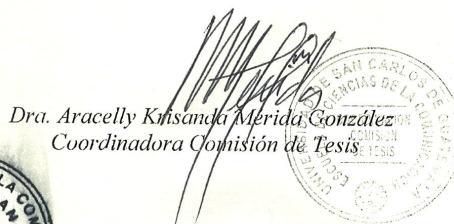 Dra. Aracelly Krisanda Mérida González
Coordinadora Comisión de Tesis
UNIVERSIDAD DE SAN CARLOS DE GUATEMALA
ESCUELA DE CIENCIAS DE LA COMUNICACION
COMISION
DE TESIS